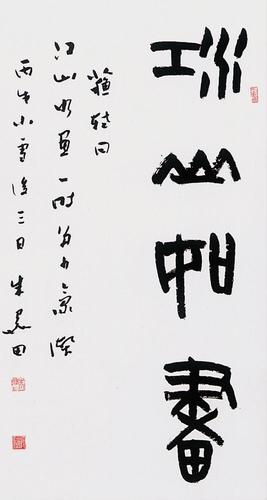 江山如畫
蘇軾曰
江山如畫一時多少豪傑
小雪後三日朱關田